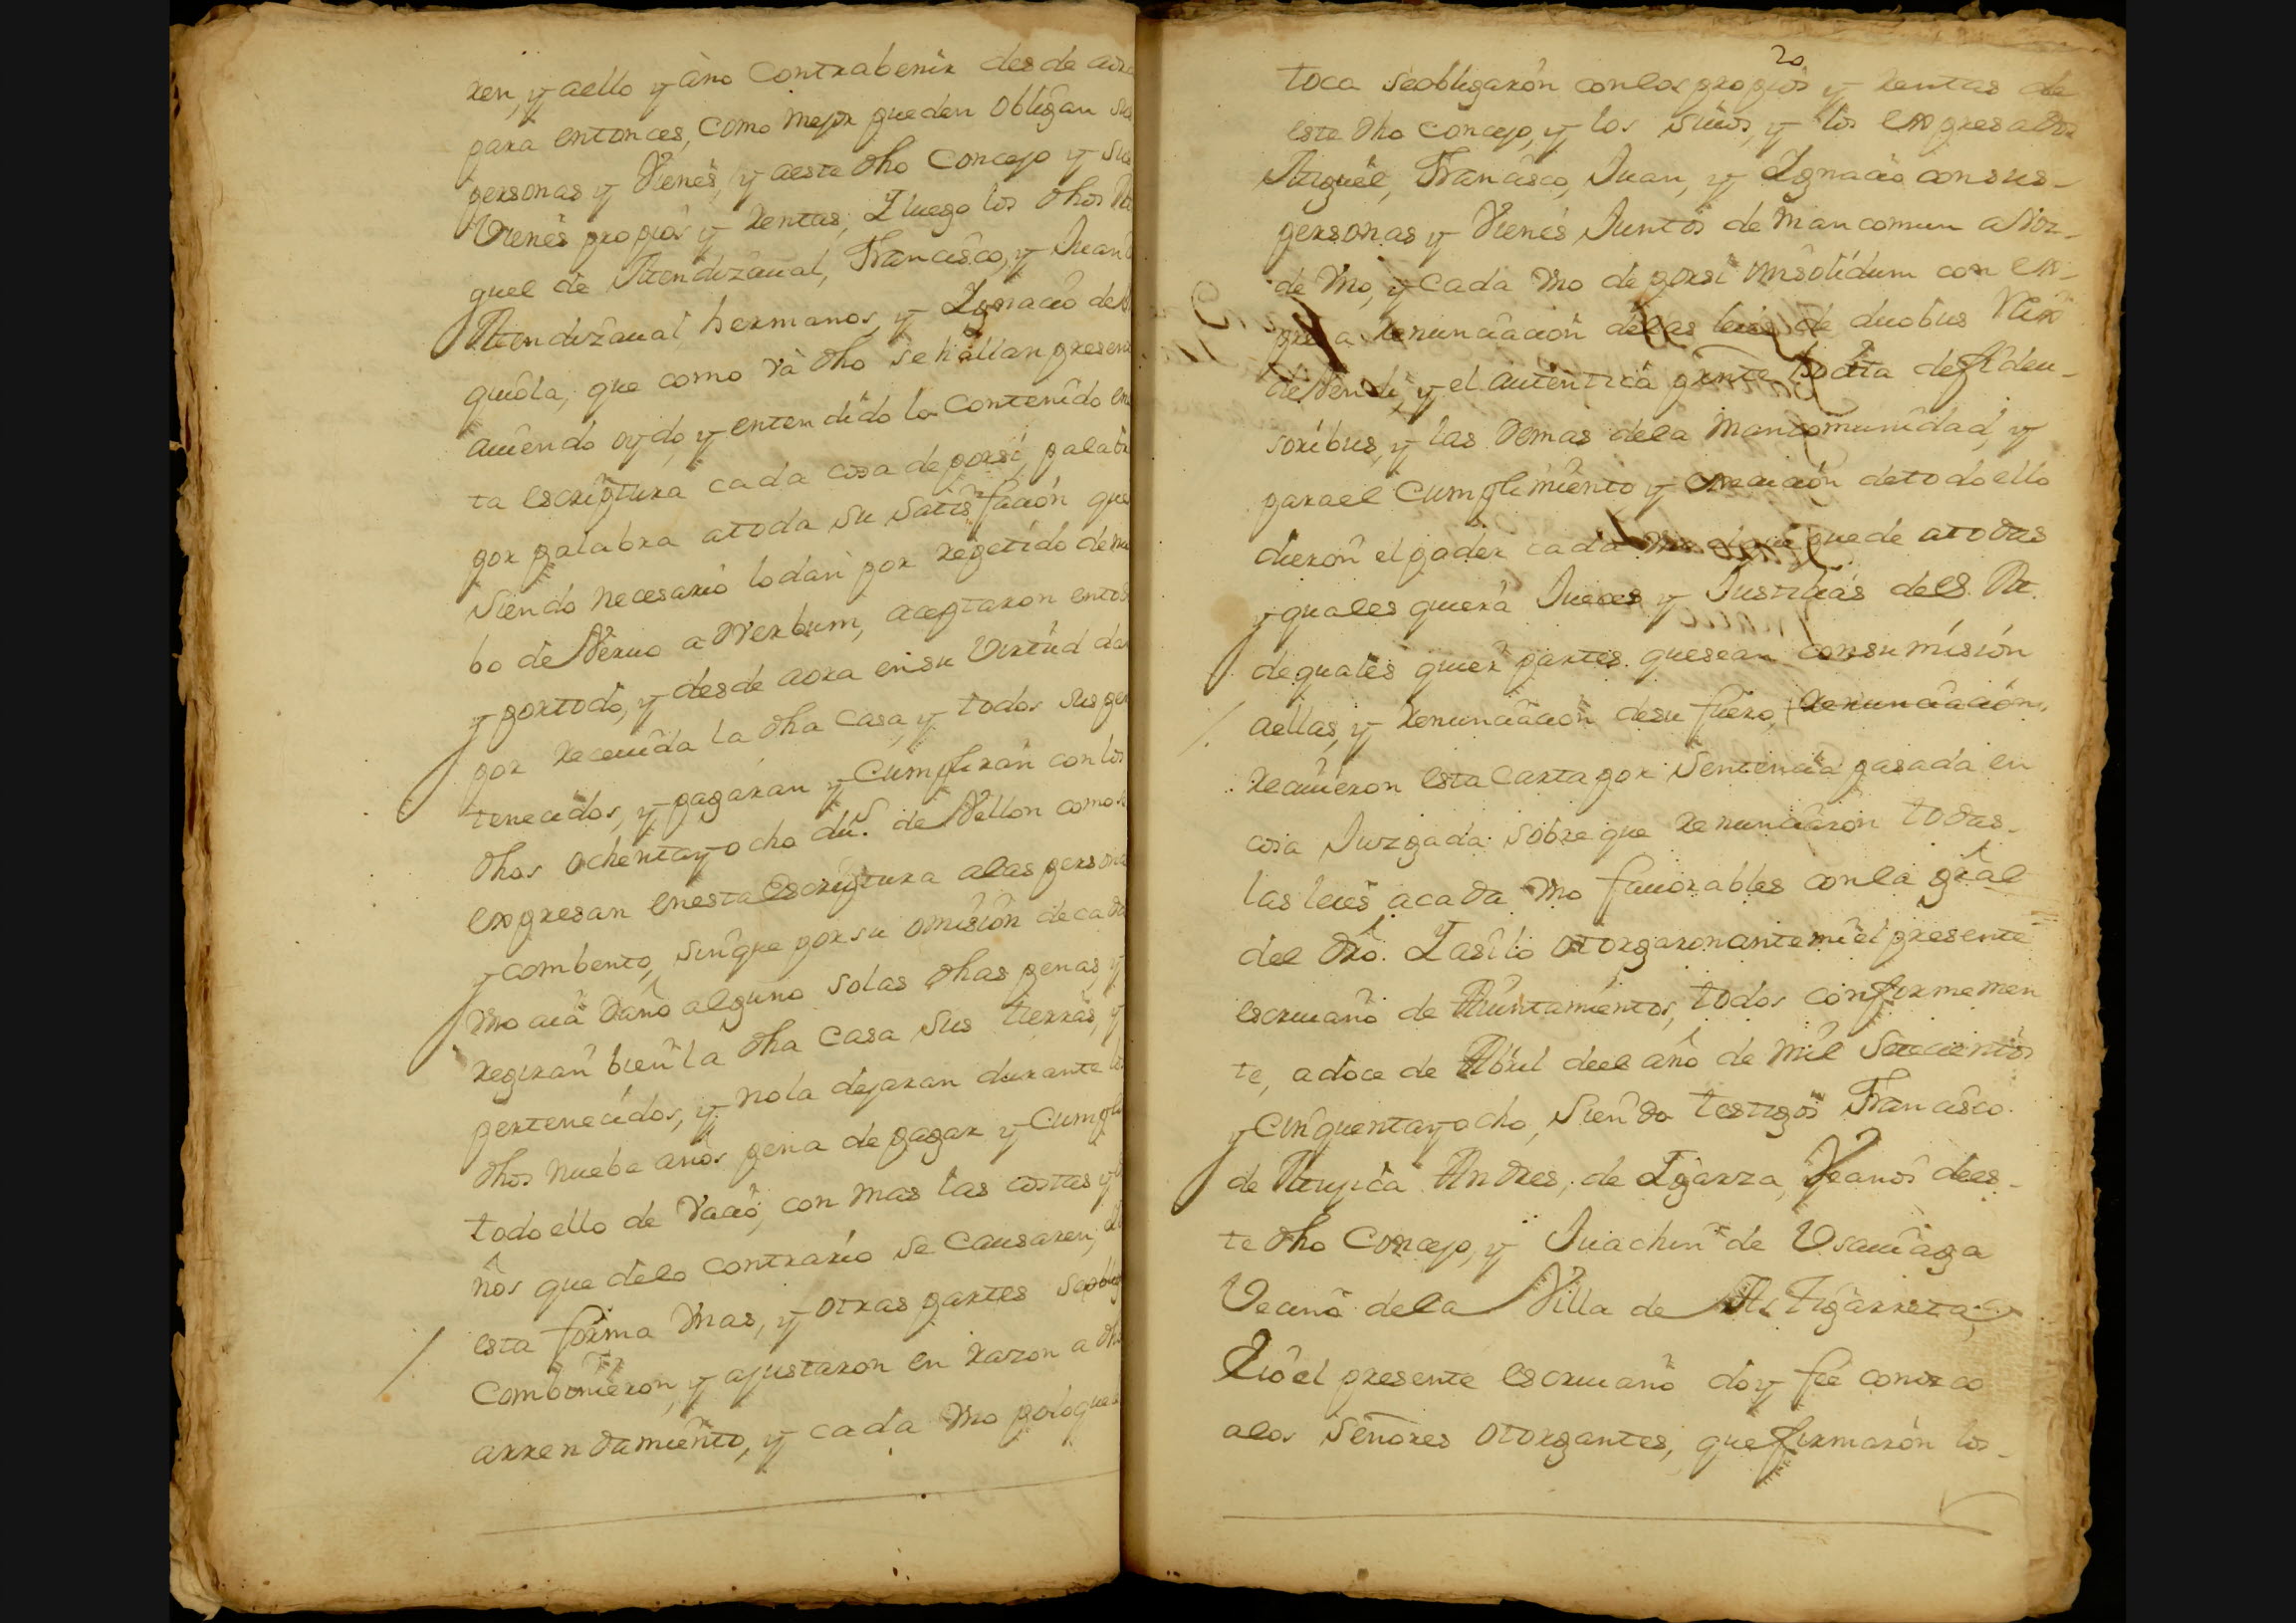 ren, y aello y àno Contrabenir desde aora
para entonces, como mejor pueden obligan sus
personas y Vienes, y aeste dho Concejo y sus
Vienes propios y Rentas, I luego los dhos Mi
guel de Mendizaual, Francisco, y Juan
Mendizaual hermanos, y Ignacio de
quiola, que como và dho se hallan presen
auiendo oydo, y entendido lo Contenido en
ta escriptura cada cosa de porsi, palabr
por palabra atoda su satisfacion que
siendo necesario lodan por repetido de
bo de Veruo a Verbum, aceptaron ento
y portodo, y desde aora en su Virtud dan
por receuida la dha Casa, y todos sus per
tenecidos, y pagaran y Cumpliran con los
dhos ochentayocho du.s de Vellon como
expresan enesta Escriptura alas persona
y combento, sinque porsu omision de cada
vno aia daño alguno solas dhas penas, y
regiran bien la dha Casa sus tierras, y
pertenecidos, y nola dejaran durante lo
dhos nuebe años pena de pagar y Cumpli
todo ello de Vacio, con mas las costas y
ños que delo contrario se Causaren,
esta forma Vnas, y otras partes seoblig
Combinieron, y ajustaron en razon a dho
arrendamiento, y cada Vno polo que
20
toca seobligaron conlos propios y rentas de
este dho Concejo, y los suios, y los expresados
Miguel, Francisco, Juan, y Ignacio consus
personas y Vienes Juntos de Mancomun a Voz
de Vno, y Cada Vno de porsi Insolidum con ex
presa renunciacion delas leies de duobus Reix
de Vendi, y el autentica presente hocita de fideu
soribus, y las demas dela Mancomunidad, y
parael Cumplimiento y execucion detodo ello
dieron el poder cada vno el que puede atodas
y quales quiera Jueces y Justicias de S. M.
de quales quier partes quesean consu mision
aellas, y renunciacion desu fuero, renunciacion,
receuieron esta Carta por Sentencia pasada en
cosa Juzgada sobre que renunciaron todas
las leies acada Vno fauorables conla gral
del dro. I asilo otorgaron ante mi el presente
escriuano de Aiuntamientos, todos conformemen
te, a doce de Abril deel año de mil Setecientos
y Cinquentayocho, siendo testigos Francisco
de Mujica Andres, de Igarza, Vecanos dees
te dho Concejo, y Juachin de Vsauiaga
Vecino dela Villa de Astigarreta, y
Io el presente escriuano doy fee conozco
alos Señores otorgantes, que firmaron los